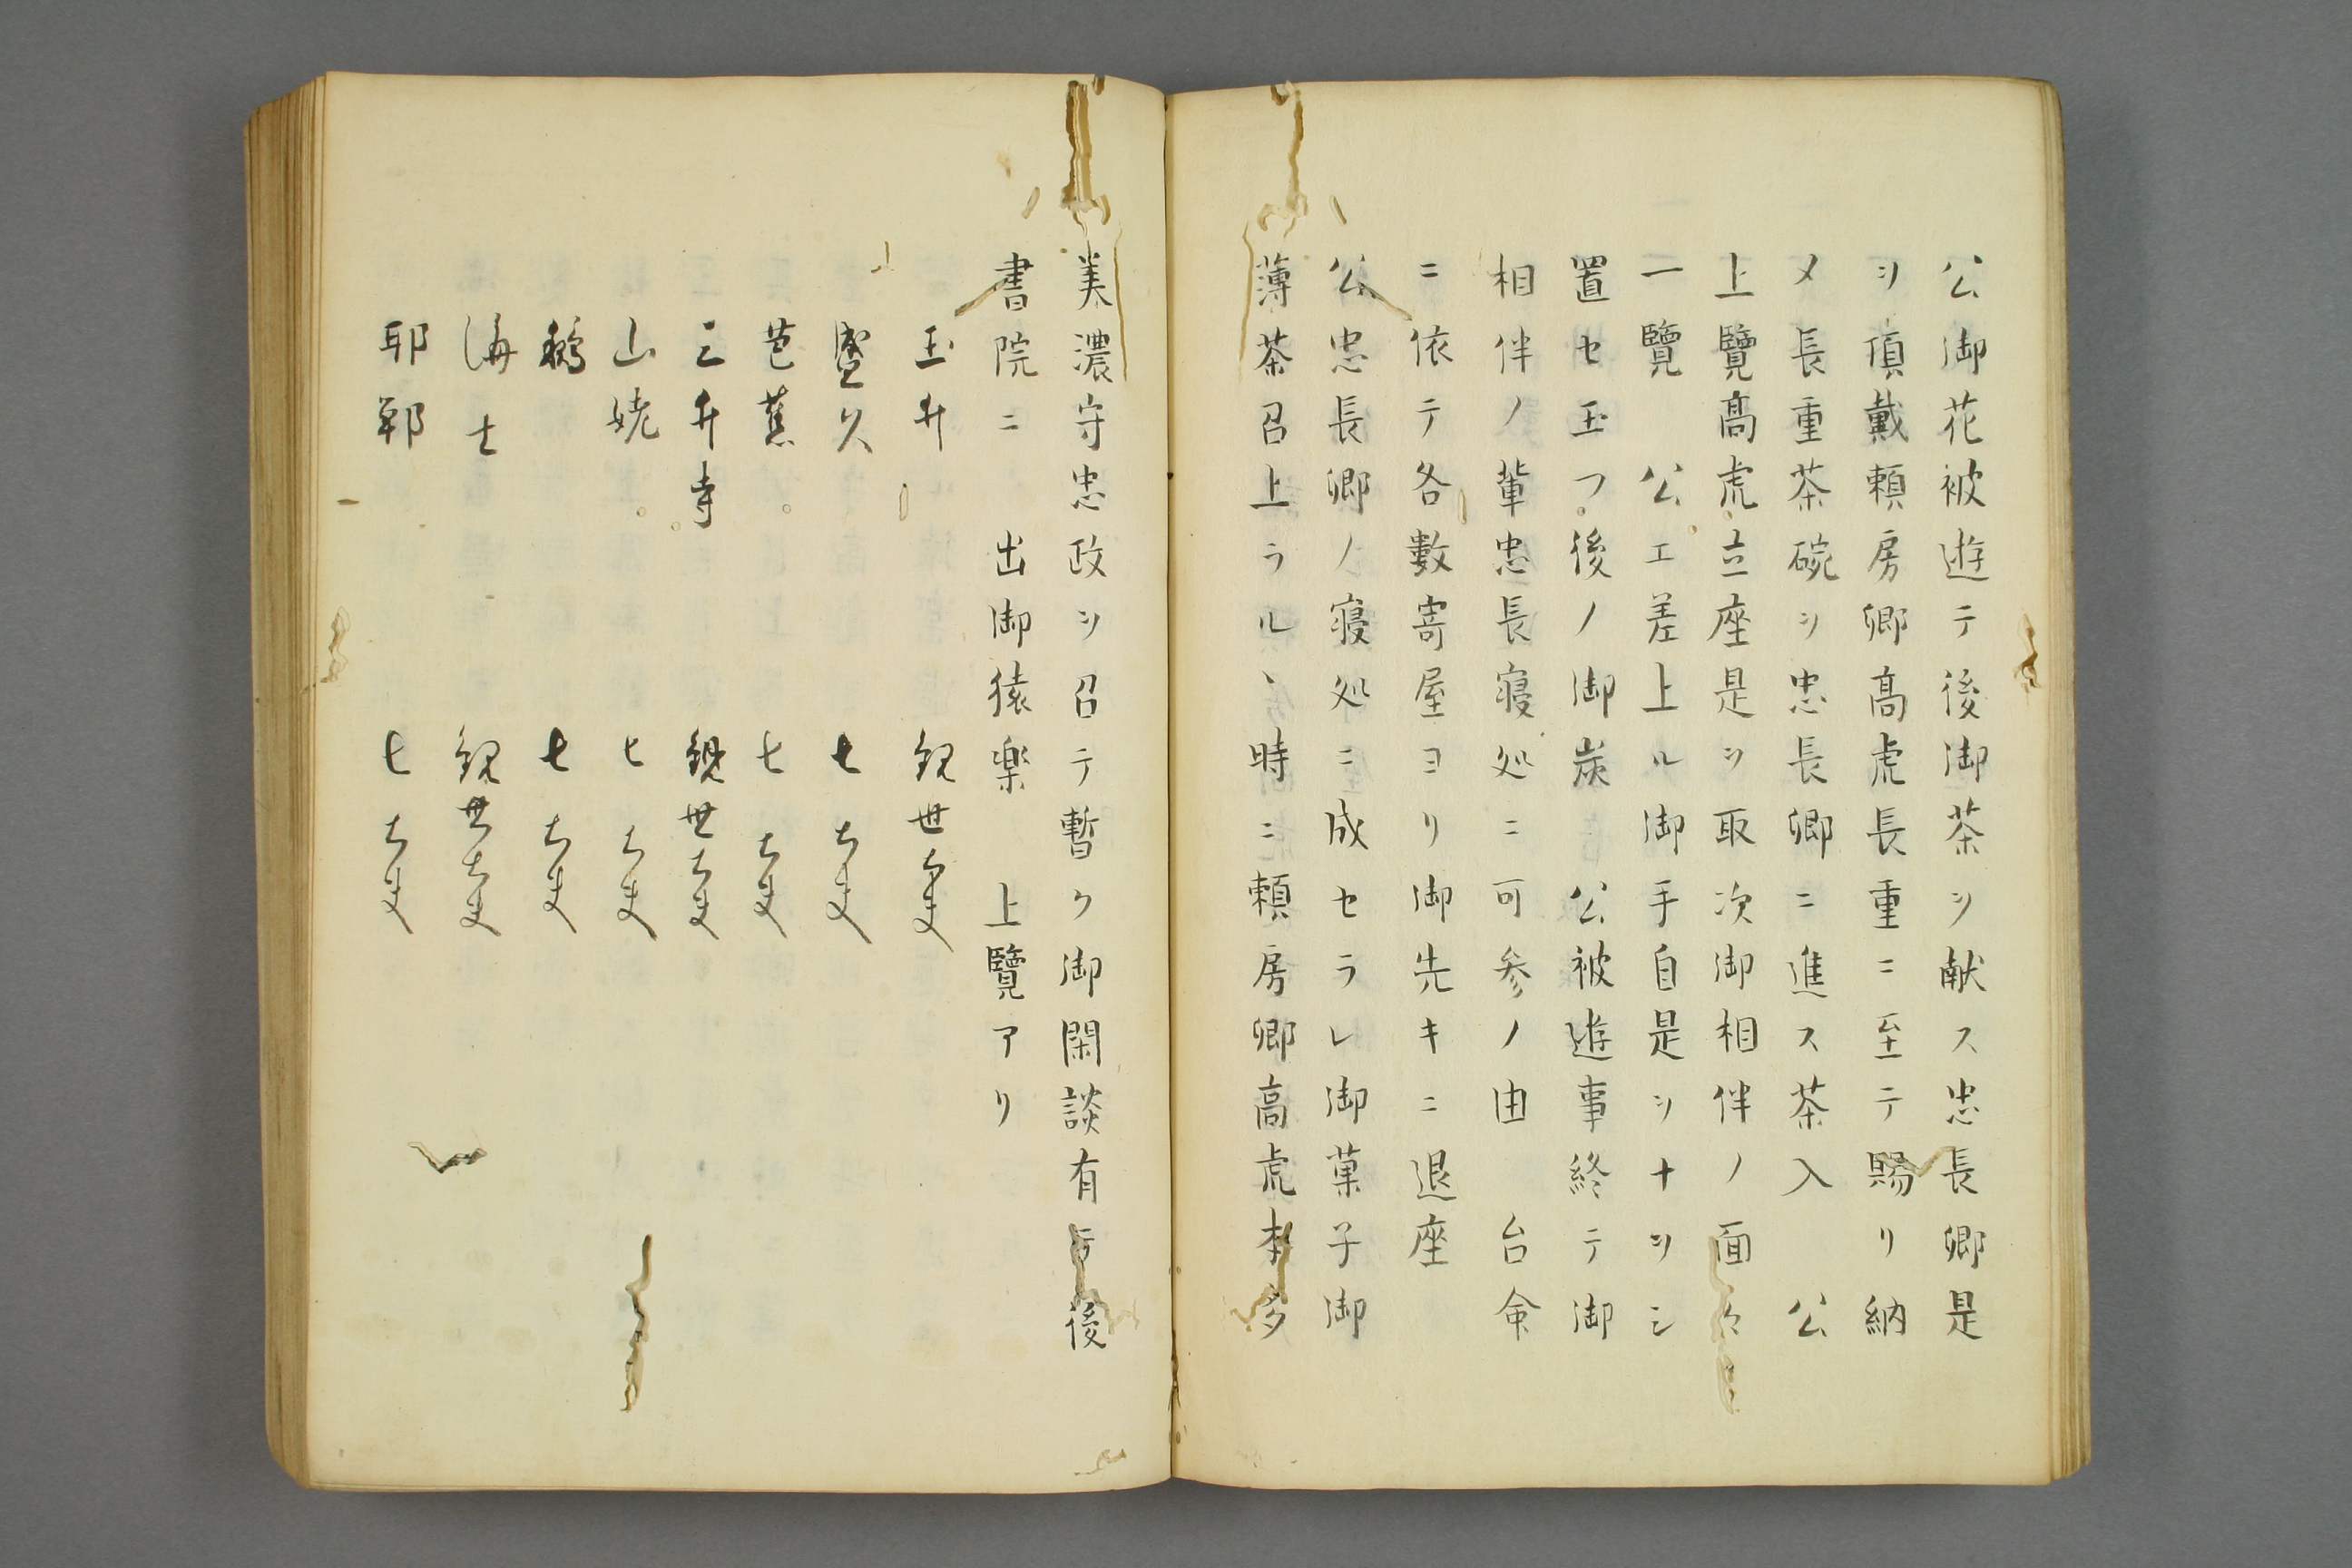 公御花被遊テ後御茶ヲ献ス忠長卿是
ヲ頂戴頼房卿高虎長重ニ至テ賜リ納
メ長重茶碗ヲ忠長卿ニ進ス茶入　公
上覽高虎立座是ヲ取次御相伴ノ面々
一覽　公エ差上ル御手自是ヲナヲシ
置セ玉フ後ノ御炭　公被遊事終テ御
相伴ノ輩忠長寝処ニ可参ノ由　台命
ニ依テ各數寄屋ヨリ御先キニ退座
公忠長卿ノ寝処ニ成セラレ御菓子御
薄茶召上ラルヽ時ニ頼房卿高虎本多
美濃守忠政ヲ召テ暫ク御閑談有テ後
書院ニ　出御猿楽　上覽アリ
玉井　観世大夫
盛久　七大夫
芭蕉　七大夫
三井寺　観世大夫
山姥　七大夫
鵜　七大夫
海士　観世大夫
耶鄲　七大夫